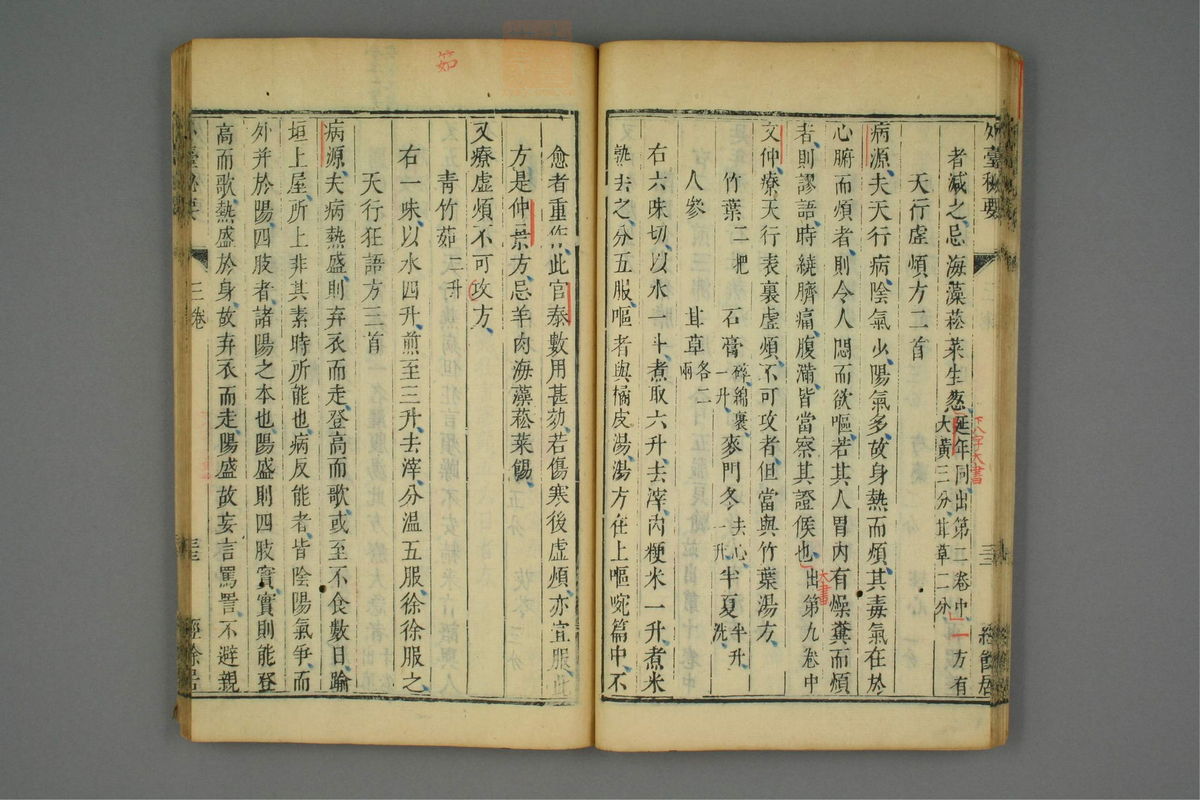 外臺秘要
者減之忌海藻菘菜生葱延年同出第二卷中一方有大黃三分甘草二分
天行虛煩方二首
病源夫天行病陰氣少陽氣多故身熱而煩其毒氣在於
心腑而煩者則令人悶而欲嘔若其人胃內有燥糞而煩
者則謬語時繞臍痛腹滿皆當察其證候也出第九卷中
文仲療天行表裏虛煩不可攻者但當與竹葉湯方
竹葉二把 石膏碎綿裹一升 麥門冬去心一升 半夏半升洗
人參 甘草各二兩
右六味切以水一斗煮取六升去滓內粳米一升煮米
熟去之分五服嘔者與橘皮湯湯方在上嘔啘篇中不
愈者重作此官泰數用甚効若傷寒後虛煩亦宜服此
方是仲景方忌羊肉海藻菘菜餳
又療虛煩不可攻方
青竹茹二升
右一味以水四升煎至三升去滓分溫五服徐徐服之
天行狂語方三首
病源夫病熱盛則弃衣而走登高而歌或至不食數日踰
垣上屋所上非其素時所能也病反能者皆陰陽氣爭而
外并於陽四肢者諸陽之本也陽盛則四肢實實則能登
高而歌熱盛於身故弃衣而走陽盛故妄言罵詈不避親
三卷
三三
經餘居
茹
大書